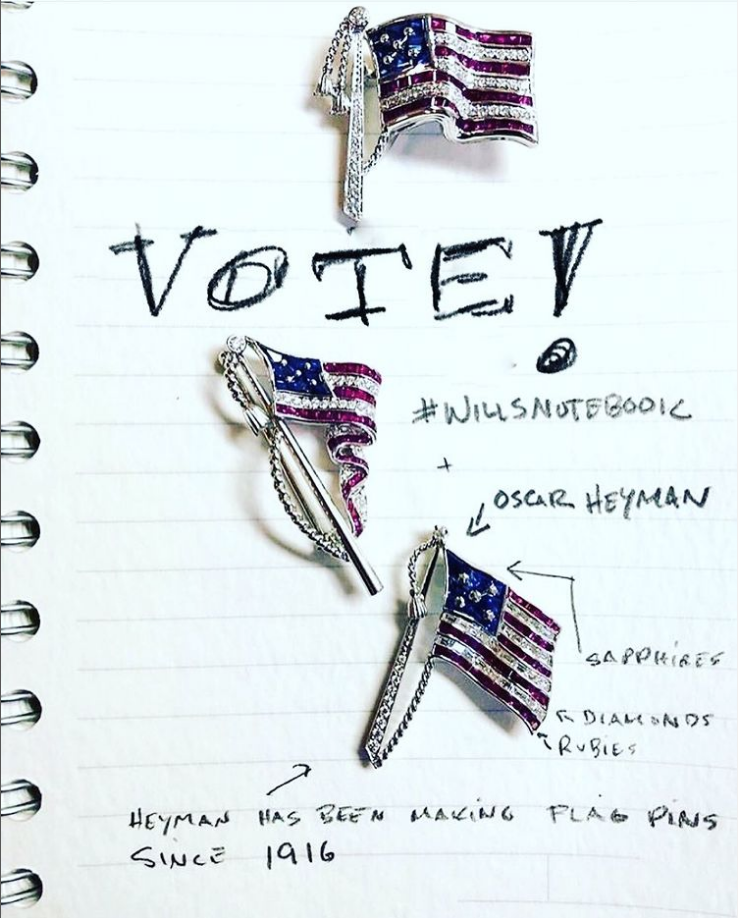 VOTE!
#WILLSNOTEBOOK
+
OSCAR HEYMAN
SAPPHIRES
DIAMONDS
RUBIES
HEYMAN HAS BEEN MAKING FLAG PINS
SINCE 1916